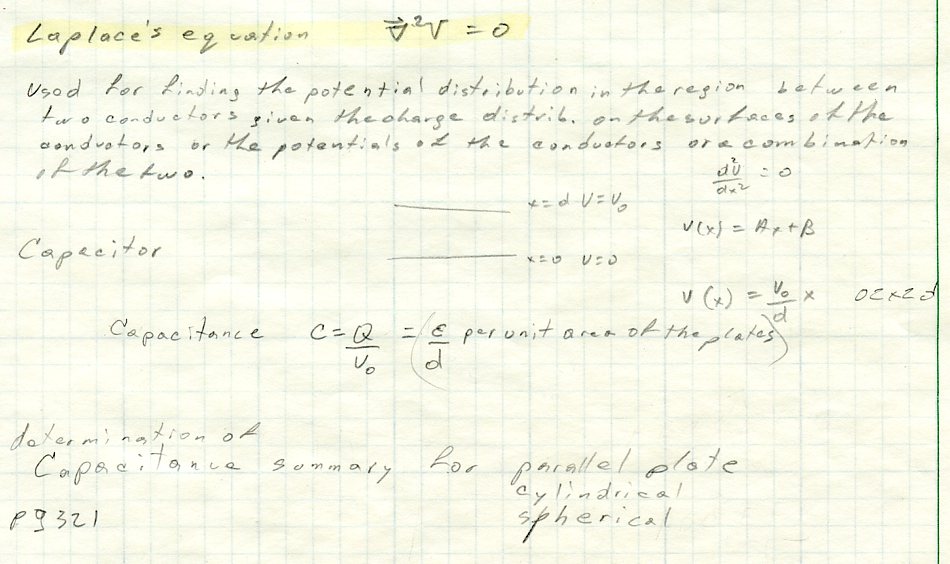 Laplace's equation ∇⃗²V = 0
Used for finding the potential distribution in the region between
two conductors given the charge distrib. on the surfaces of the
conductors or the potentials of the conductors or a combination
of the two.
d²V/dx² = 0
x=d V=V₀
V(x) = Ax+B
Capacitor
x=0 V=0
V(x) = V₀/d x 0<x<d
Capacitance C = Q/V₀ = (ε/d per unit area of the plates)
determination of
Capacitance summary for parallel plate
cylindrical
spherical
pg 321